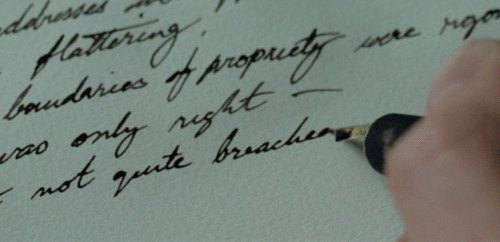 addresses in
flattering,
boundaries of propriety were
was only right —
not quite breached